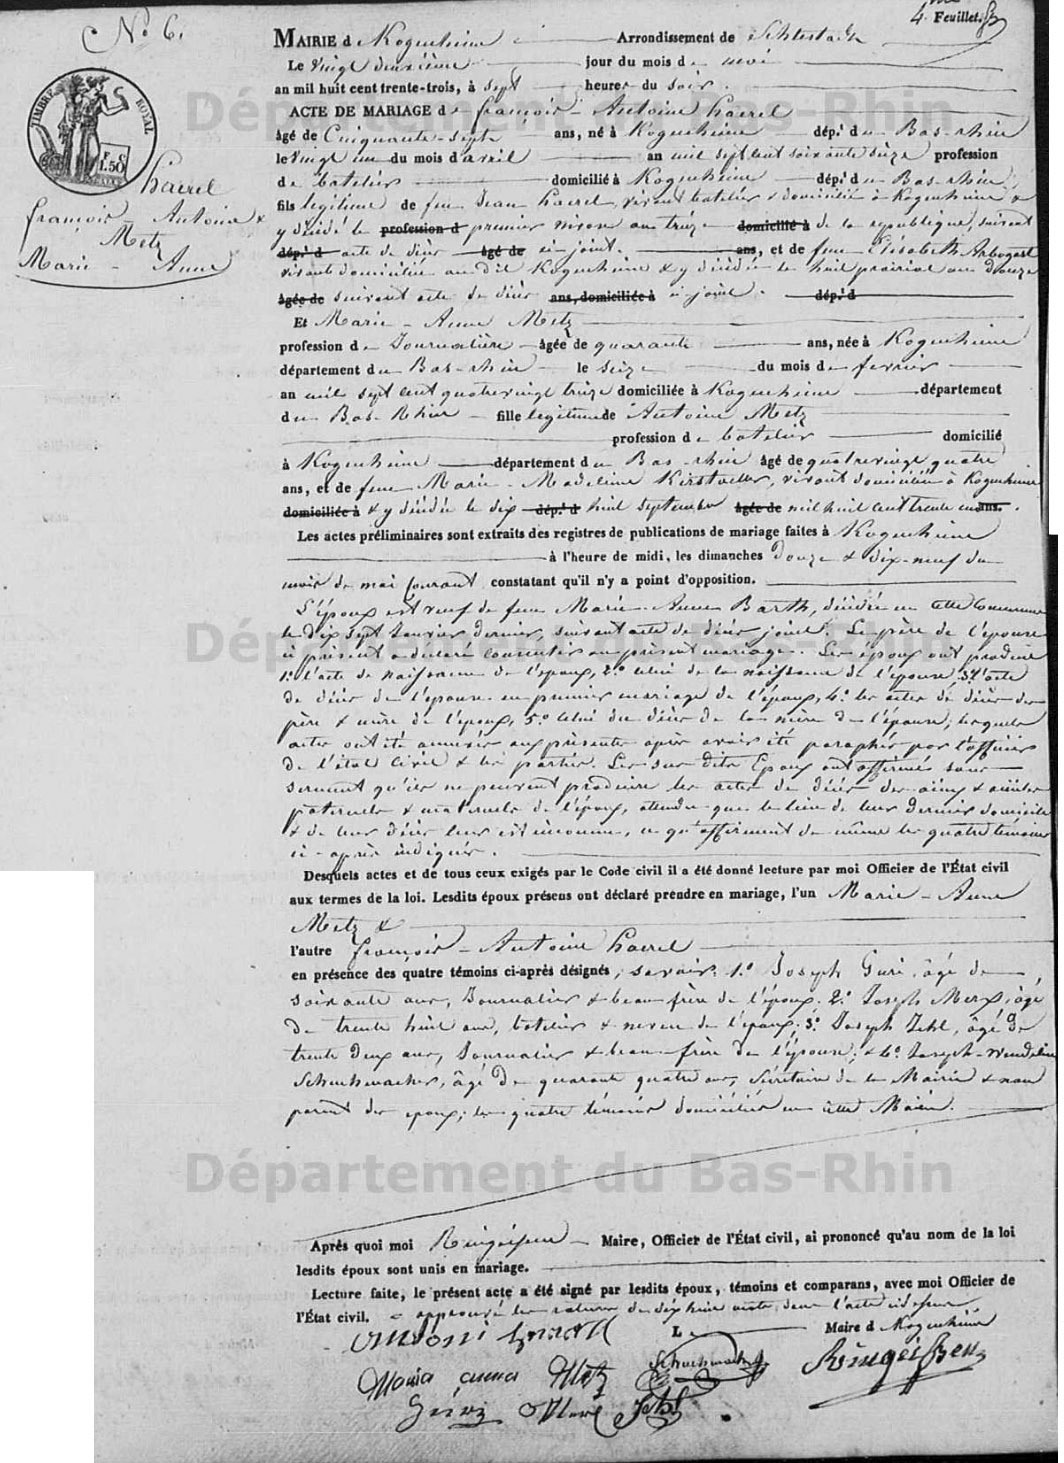 4me Feuillet.
No 6.
MAIRIE de Kogenheim Arrondissement de Schlestadt
Le vingt deuxième jour du mois de mai
an mil huit cent trente-trois, à sept heures du soir.
ACTE DE MARIAGE de françois-Antoine haerel
âgé de Cinquante-sept ans, né à Kogenheim dép.t du Bas-rhin
le vingt un du mois d'avril an mil sept cent soixante seize profession
de batelier domicilié à Kogenheim dép.t du Bas-rhin;
fils legitime de feu Jean haerel, vivant batelier domicilié à Kogenheim &
y décédé le profession d premier nivose an treize domicilié à de la republique, suivant
dép.t d acte de décès âgé de ci-joint. ans, et de feue Elisabeth Arbogast
vivante domiciliée au dit Kogenheim & y décédée le huit prairial an douze
âgée de suivant acte de décès ans, domiciliée à ci joint. dép.t d
Et Marie-Anne Metz
profession de Journalière âgée de quarante ans, née à Kogenheim
département du Bas-rhin le seize du mois de fevrier
an mil sept cent quatrevingt treize domiciliée à Kogenheim département
du Bas-Rhin fille legitime de Antoine Metz
profession de batelier domicilié
à Kogenheim département du Bas-rhin âgé de quatrevingt quatre
ans, et de feue Marie-Madeleine Kirstetter, vivante domiciliée à Kogenheim
domiciliée à & y décédée le dix dép.t d huit septembre âgée de mil huit cent trente un ans.
Les actes préliminaires sont extraits des registres de publications de mariage faites à Kogenheim
à l'heure de midi, les dimanches douze & dix-neuf du
mois de mai Courant constatant qu'il n'y a point d'opposition.
L'époux est veuf de feue Marie-Anne Barth, décédée en cette Commune
le dix sept Janvier dernier, suivant acte de décès joint. Le père de l'épouse
ci présent a declaré consentir au présent mariage. Les époux ont produit
1.o l'acte de naissance de l'époux, 2.o celui de la naissance de l'épouse, 3.o l'acte
de décès de l'épouse en premier mariage de l'époux, 4.o les actes de décès des
père & mère de l'époux, 5.o celui du décès de la mère de l'épouse, lesquels
actes ont été annexés aux présentes après avoir été paraphés par l'officier
de l'état civil & les parties. Les sus dits Epoux ont affirmé sous
serment qu'ils ne peuvent produire les actes de décès des aïeux & aïeules
paternels & maternels de l'époux, attendu que le lieu de leur dernier domicile
& de leur décès leur est inconnu, ce qu'affirment de même les quatre témoins
ci-après indiqués.
Desquels actes et de tous ceux exigés par le Code civil il a été donné lecture par moi Officier de l'État civil
aux termes de la loi. Lesdits époux présens ont déclaré prendre en mariage, l'un Marie-Anne
Metz &
l'autre françois-Antoine haerel
en présence des quatre témoins ci-après désignés, savoir: 1.o Joseph Guri, âgé de
soixante ans, Journalier & beau frère de l'époux. 2.o Joseph Merx, âgé
de trente huit ans, batelier & neveu de l'époux; 3.o Joseph Jehl, âgé de
trente deux ans, Journalier & beau-frère de l'épouse; & 4.o Joseph-Wendelin
Schuhmacher, âgé de quarante quatre ans, Sécrétaire de la Mairie & non
parent des époux; les quatre témoins domiciliés en cette Mairie.
haerel
françois-Antoine &
Metz
Marie-Anne
TIMBRE ROYAL
F. C.
1.50
Après quoi moi Ringeisen Maire, Officier de l'État civil, ai prononcé qu'au nom de la loi
lesdits époux sont unis en mariage.
Lecture faite, le présent acte a été signé par lesdits époux, témoins et comparans, avec moi Officier de
l'État civil. approuvé la rature de dix huit mots dans l'acte ci dessus
Le Maire d Kogenheim
Maria anna Metz
Schuhmacher
Ringeisen
Jehl
Département du Bas-Rhin
Département du Bas-Rhin
Département du Bas-Rhin